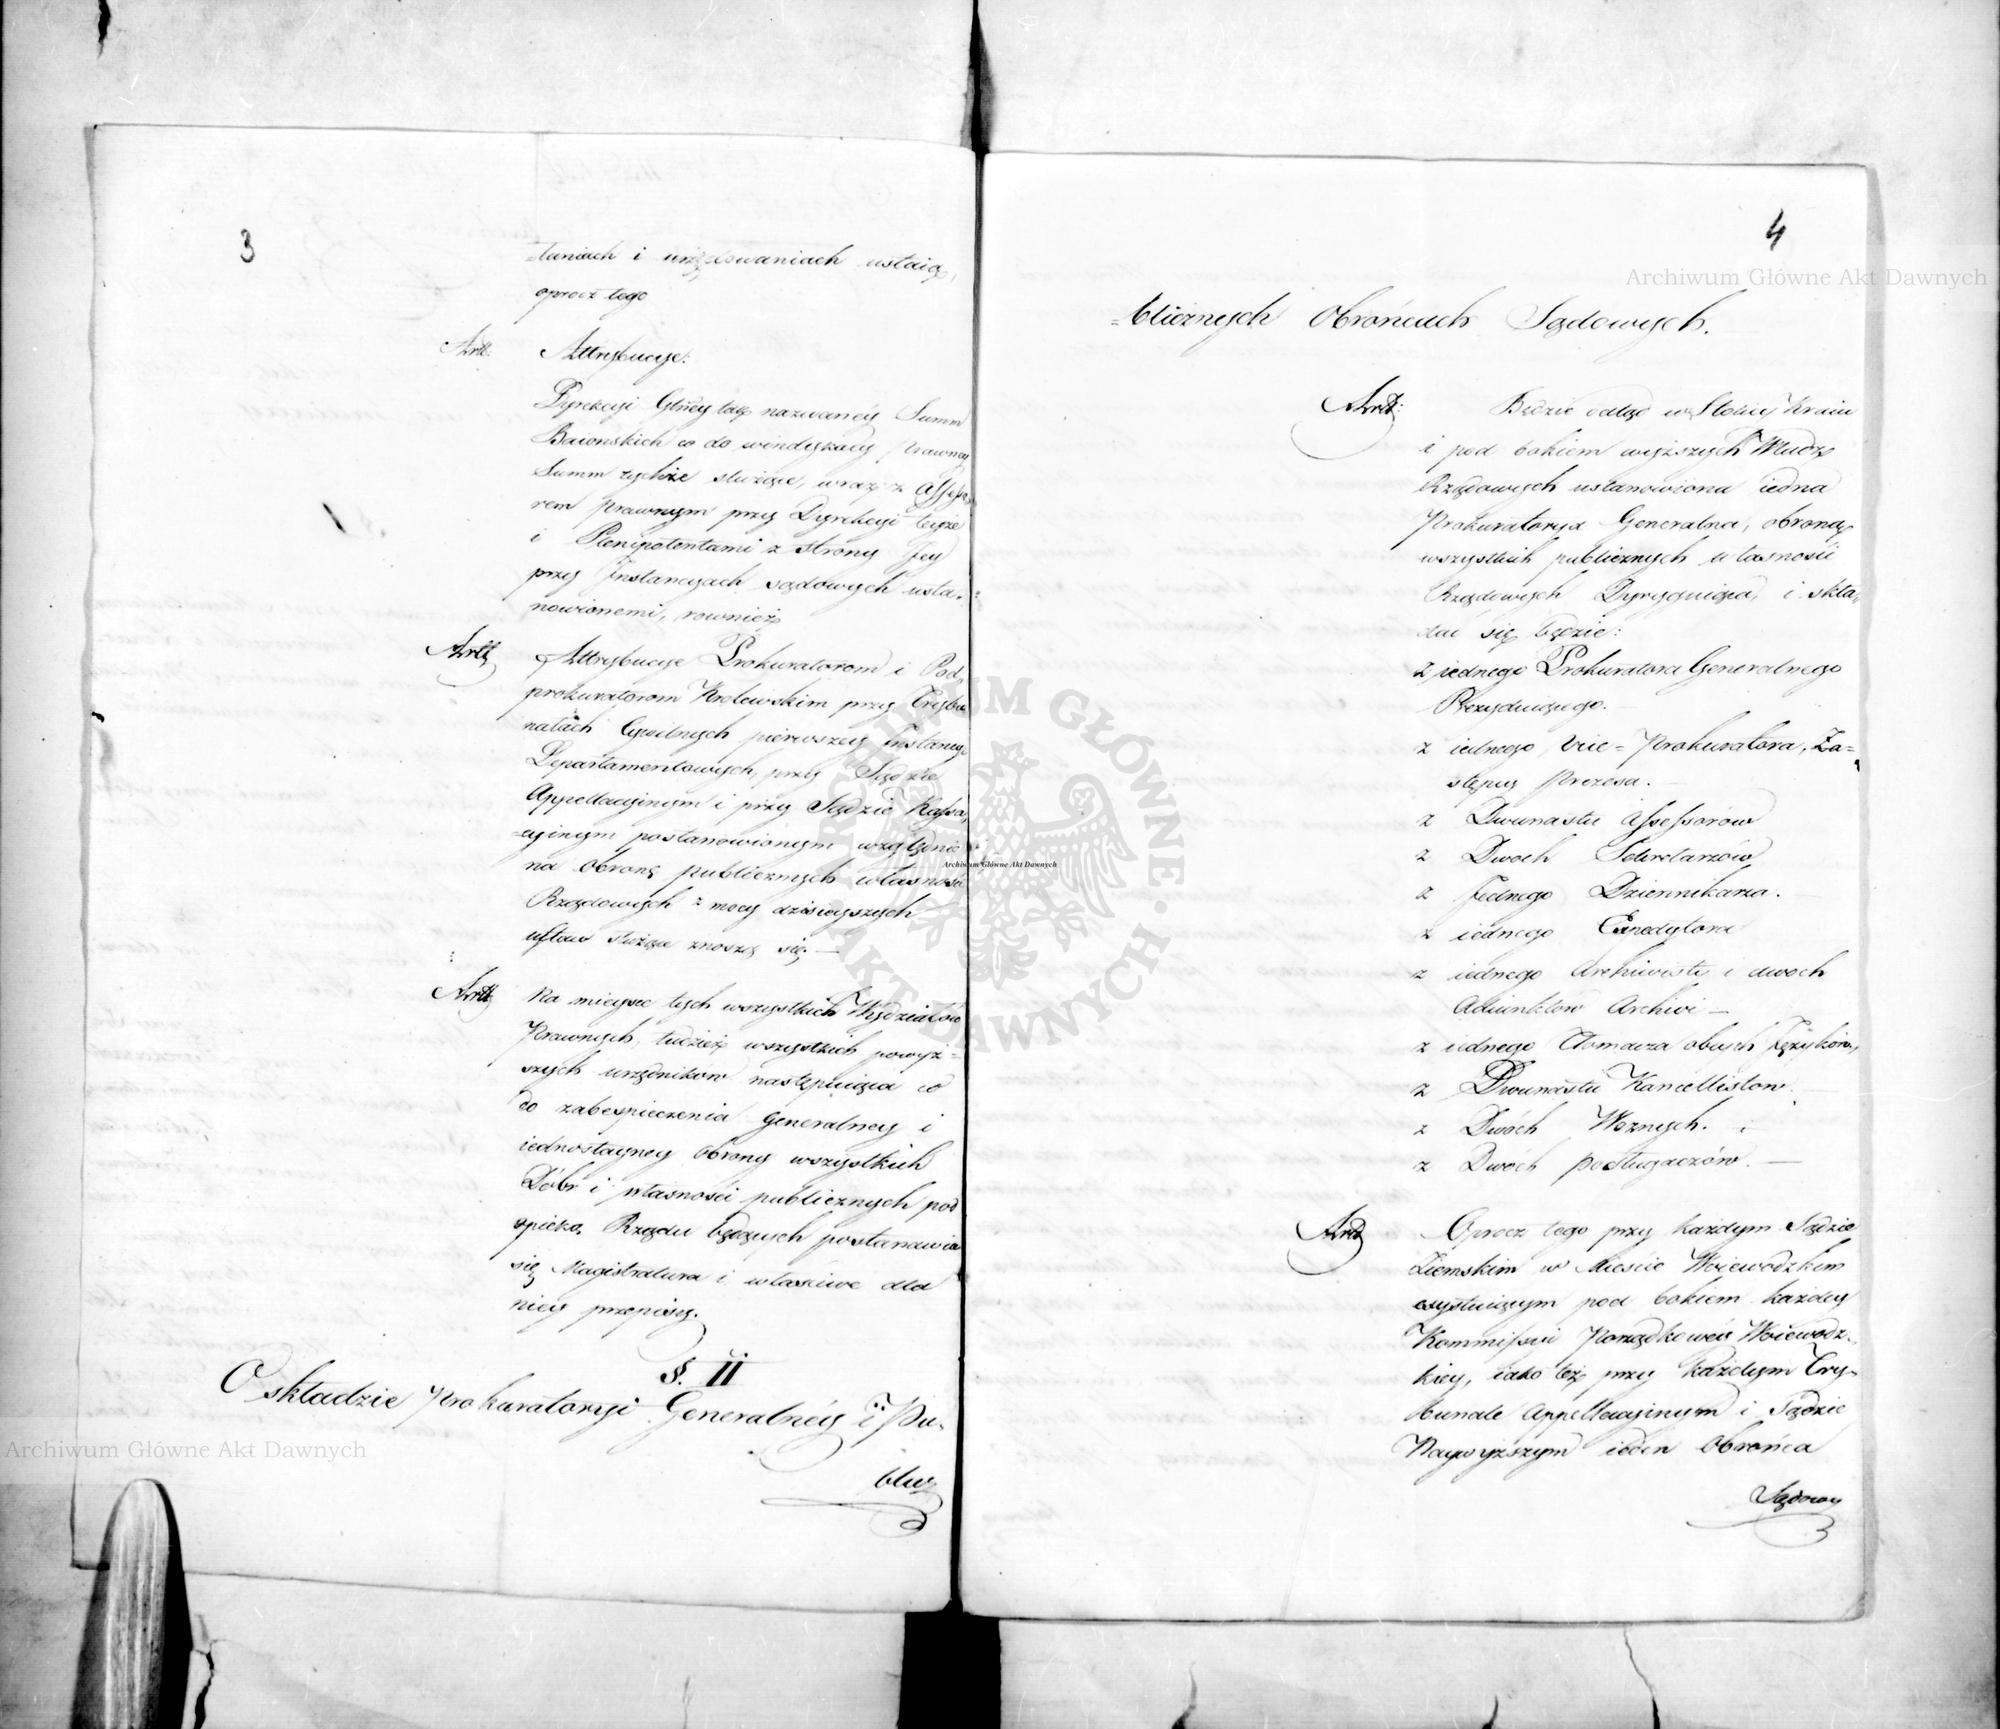 3
=taniach i urzędowaniach ustaią,
oprocz tego
Artt: Attrybucye:
Dyrekcyi Głney tak nazwanéy Summ
Baionskich co do windykacyi prawney
Summ tychże służące, wraz z Assesso,
rem prawnym przy Dyrekcyi teyże
i Plenipotentami z strony Jey
przy Instancyach sądowych usta,
nowionemi, rownież
Artt Attrybucye Prokuratorom i Pod,
prokuratorom Krolewskim przy Trybu
nałach Cywilnych pierwszey Instancyi
Departamentowych, przy Sądzie
Appellacyinym i przy Sądzie Kassa,
=cyinym postanowionym względnie
na obronę publicznych własności
Rządowych z mocy dzisieyszych
ustaw służące znoszą się. —
Artt Na mieysce tych wszystkich Wydziałów
Prawnych, tudzież wszystkich powyż=
szych urzędnikow następuiąca co
do zabespieczenia Generalney i
iednostayney obrony wszystkich
Dóbr i własności publicznych pod
opieką Rządu będących postanawia
się Magistratura i właściwe dla
niey przepisy.
§. II
O składzie Prokuratoryi Generalnéy i Pu,
blicz
4
=blicznych Obrońcach Sądowych.
Artt: Będzie odtąd w Stolicy Kraiu
i pod bokiem wyższych Władz
Rządowych ustanowiona iedna
Prokuratorya Generalna, obroną
wszystkich publicznych własności
Rządowych Dyryguiąca, i skła,
dać się będzie:
z iednego Prokuratora Generalnego
Prezyduiącego.
z iednego Vice=Prokuratora, Za=
stępcy Prezesa. —
z Dwunastu Assessorów
z Dwoch Sekretarzów
z Jednego Dziennikarza. —
z iednego Expedytora
z iednego Archiwisty i dwoch
Adiunktow Archivi —
z iednego Tłomacza obcych Języków,
z Dwunastu Kancellistow.
z Dwóch Woznych. i
z Dwoch posługaczów. —
Artt Oprocz tego przy każdym Sądzie
Ziemskim w Miescie Woiewodzkim
exystuiącym pod bokiem każdey
Kommissyi Porządkowéy Woiewodz,
kiey, iako też przy każdym Try=
bunale Appellacyinym i Sądzie
Naywyższym ieden Obrońca
Sądowy
Archiwum Główne Akt Dawnych
Archiwum Główne Akt Dawnych
Archiwum Główne Akt Dawnych
ARCHIWUM GŁÓWNE · AKT DAWNYCH ·